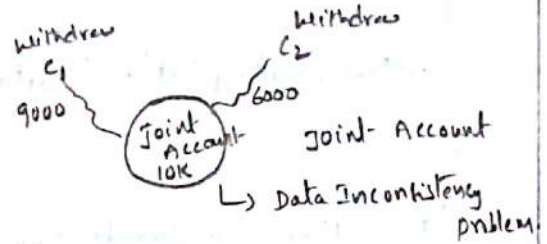 Withdraw
C1
9000
Withdraw
C2
6000
Joint
Account
10K
Joint-Account
↳ Data Inconsistency
problem